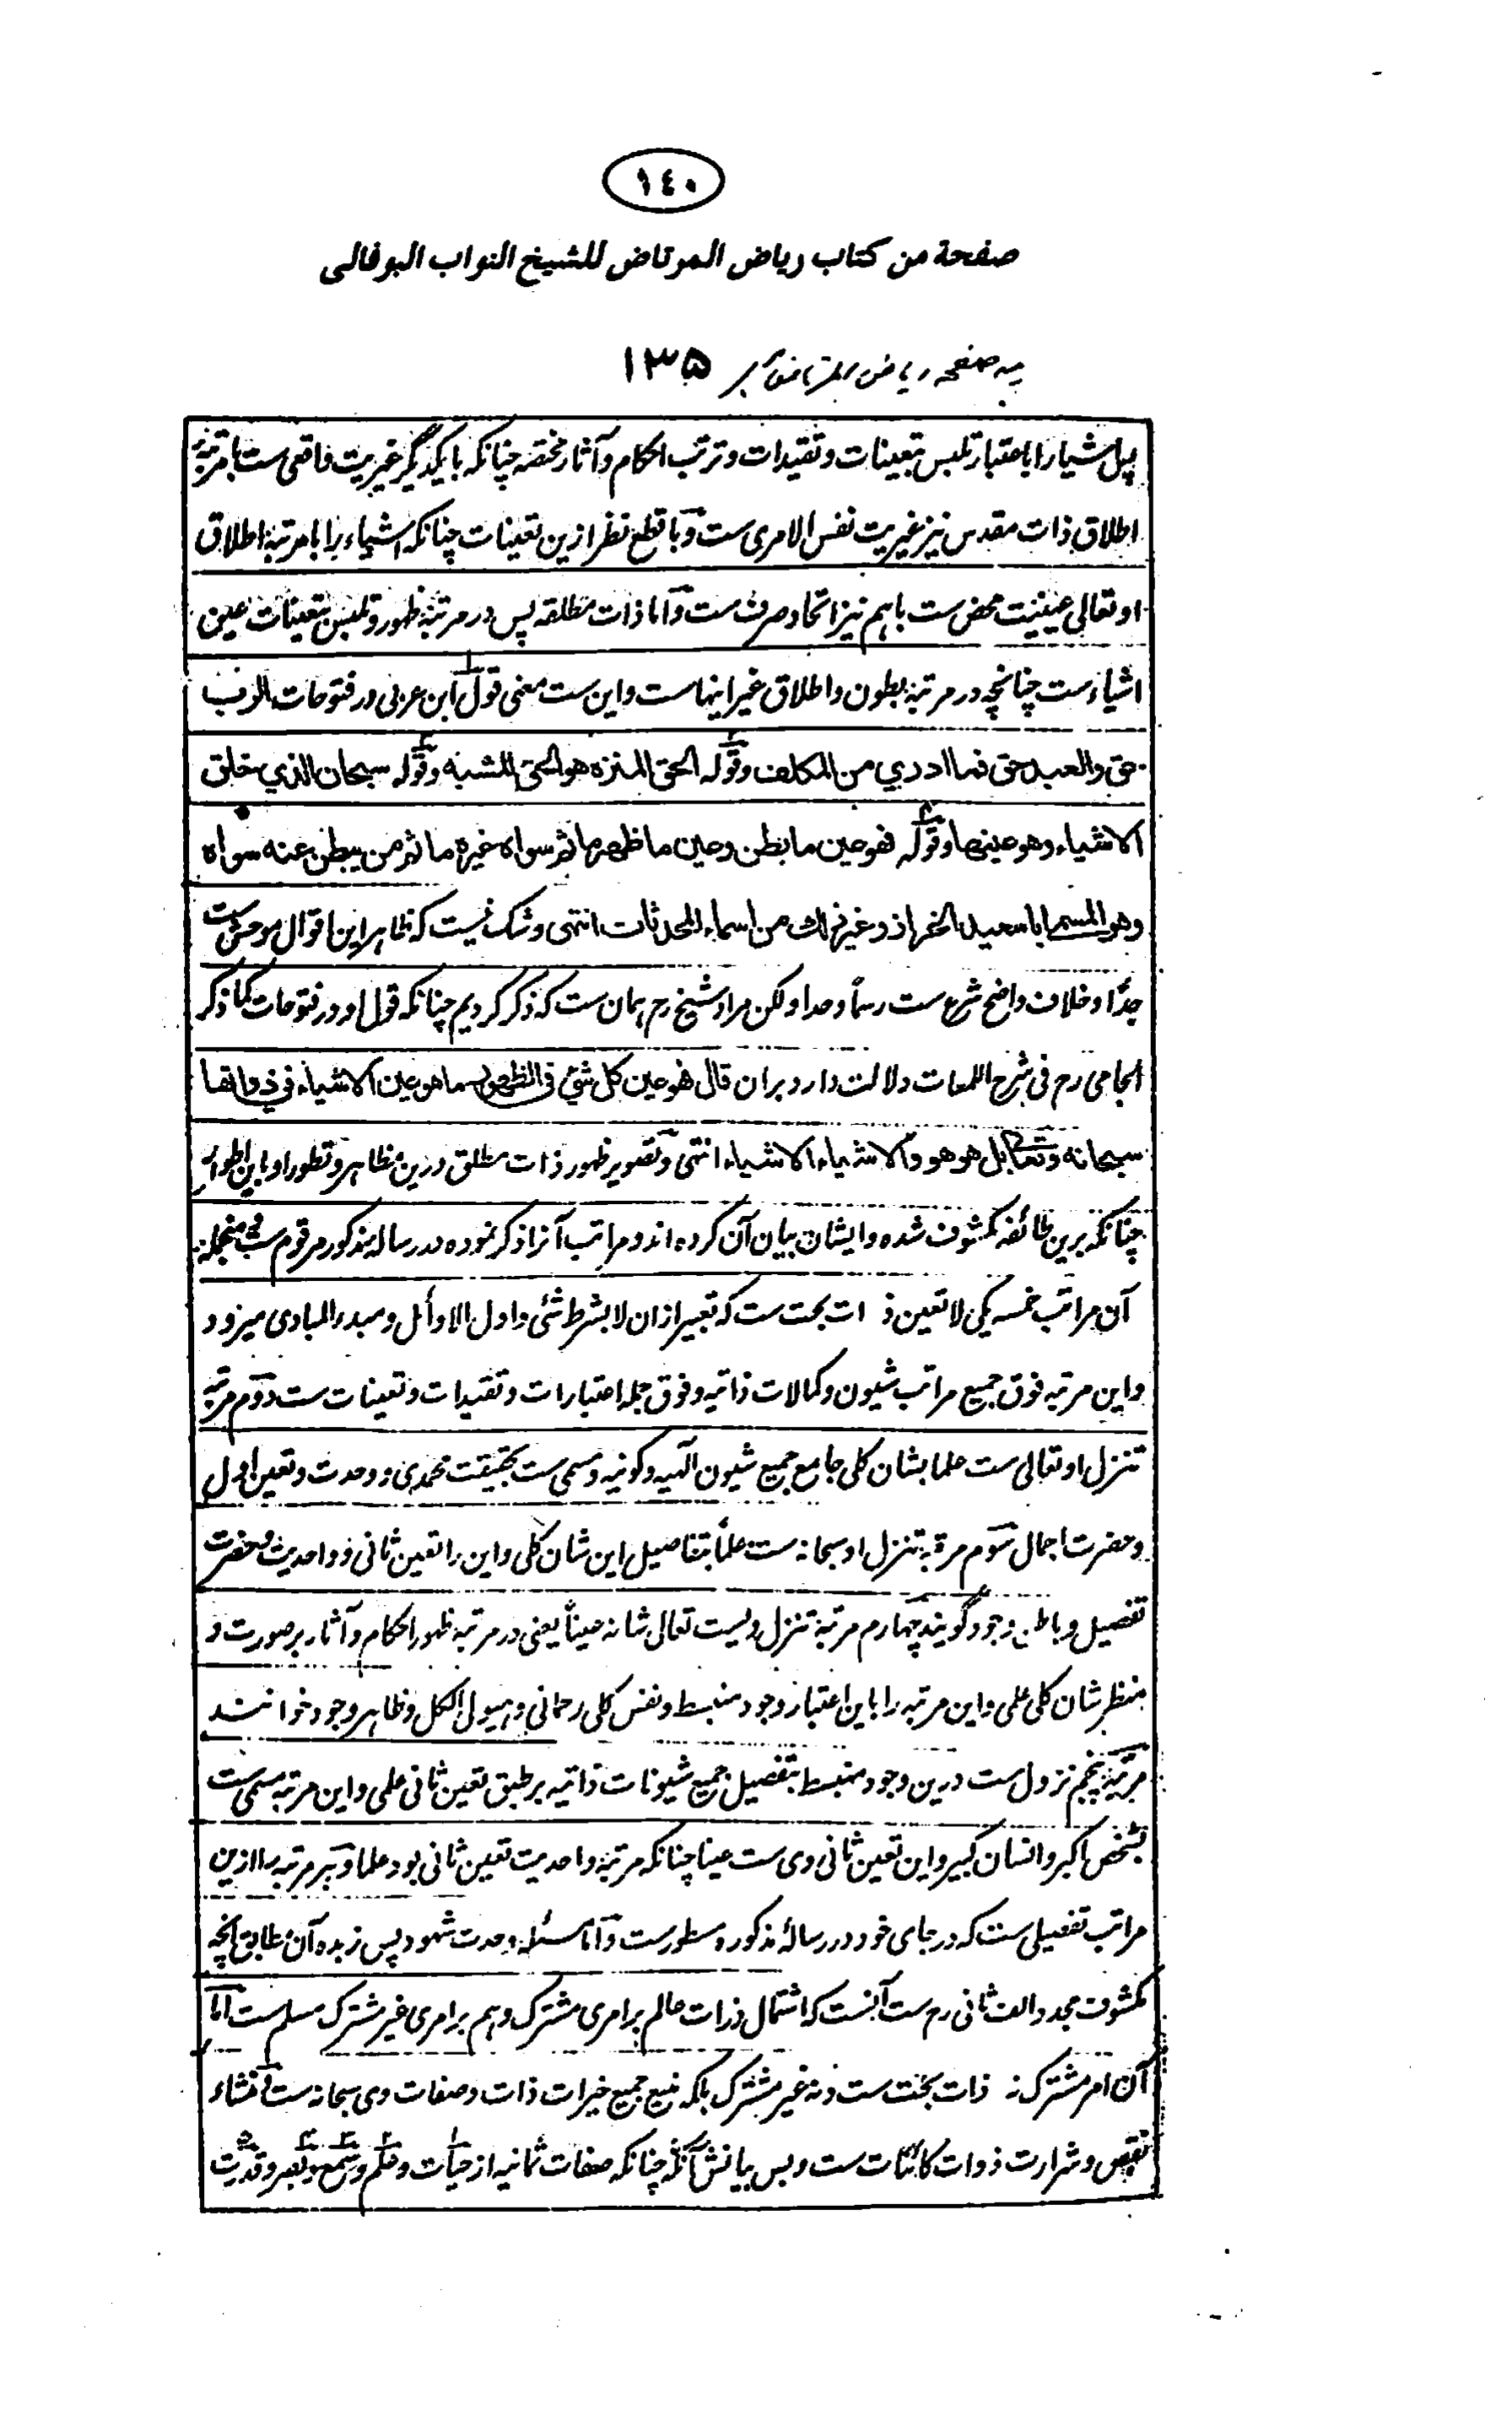 ١٤٠
صفحة من كتاب رياض المرتاض للشيخ النواب البوفالى
صفحه رياض المرتاض ١٣٥
پس اشیا را باعتبار تلبس بتعینات و تقیدات و ترتب احکام و آثار مختصه چنانکه با یکدیگر غیریت واقعی ست با مرتبۀ
اطلاق ذات مقدس نیز غیریت نفس الامری ست و با قطع نظر ازین تعینات چنانکه اشیاء را با مرتبۀ اطلاق
او تعالی عینیت محض ست باهم نیز اتحاد صرف ست و اما ذات مطلقه پس در مرتبۀ ظهور و تلبس بتعینات عین
اشیاء ست چنانچه در مرتبۀ بطون و اطلاق غیر اینهاست و این ست معنی قول ابن عربی در فتوحات الرب
حق والعبد حق فما ادري من المكلف وقوله الحق المنزه هو الحق المشبه وقوله سبحان الذي خلق
الاشياء وهو عينها وقوله فهو عين ما بطن وعين ما ظهر ما ثم سواه غيره ما ثم من يبطن عنه سواه
وهو المسمى ابا سعيد الخراز وغير ذلك من اسماء المحدثات انتهى و شک نیست که ظاهر این اقوال موحش ست
جدًا و خلاف واضح شرع ست رسمًا و حدا ولکن مراد شیخ رح همان ست که ذکر کردیم چنانکه قول او در فتوحات کما ذکر
الجامی رح فی شرح اللمعات دلالت دارد بران قال فهو عين كل شئ فى الظهور ما هو عين الاشياء فى ذواتها
سبحانه وتعالى بل هو هو والاشياء الاشياء انتهى و تصویر ظهور ذات مطلق درین مظاهر و تطور او باین اطوار
چنانکه برین طائفه مکشوف شده و ایشان بیان آن کرده اند و مراتب آنرا ذکر نموده در رساله مذکور مرقوم ست منجمله
آن مراتب خمسه یکی لا تعین ذات بحت ست که تعبیر ازان لابشرط شئی و اول الاوائل و مبدء المبادی میرود
و این مرتبه فوق جمیع مراتب شیون و کمالات ذاتیه و فوق جمله اعتبارات و تقیدات و تعینات ست دوم مرتبۀ
تنزل او تعالی ست علما بشان کلی جامع جمیع شیون الهیه و کونیه و مسمی ست بحقیقت محمدی و وحدت و تعین اول
و حضرت اجمال سوم مرتبۀ تنزل او سبحانه ست علمًا بتفاصیل این شان کلی و این را تعین ثانی و واحدیت و حضرت
تفصیل و باطن وجود گویند چهارم مرتبۀ تنزل ویست تعالی شانه عینًا یعنی در مرتبۀ ظهور احکام و آثار بر صورت و
منظر شان کلی علمی و این مرتبه را باین اعتبار وجود منبسط و نفس کلی رحمانی و هیولی الکل و ظاهر وجود خوانند
مرتبۀ پنجم نزول ست درین وجود منبسط بتفصیل جمیع شیونات ذاتیه بر طبق تعین ثانی علمی و این مرتبه مسمی ست
بشخص اکبر و انسان کبیر و این تعین ثانی وی ست عینا چنانکه مرتبۀ واحدیت تعین ثانی بود علما و هر مرتبه را ازین
مراتب تفصیلی ست که در جای خود در رسالۀ مذکوره مسطور ست و اما مسئله وحدت شهود پس زبده آن مطابق آنچه
مکشوف مجدد الف ثانی رح ست آنست که اشتمال ذرات عالم بر امری مشترک و هم بر امری غیر مشترک مسلم ست اما
آن امر مشترک نه ذات بحت ست و نه غیر مشترک بلکه منبع جمیع خیرات ذات و صفات وی سبحانه ست و منشاء
نقص و شرارت ذوات کائنات ست و بس بیانش آنکه چنانکه صفات ثمانیه از حیات و علم و سمع و بصر و قدرت